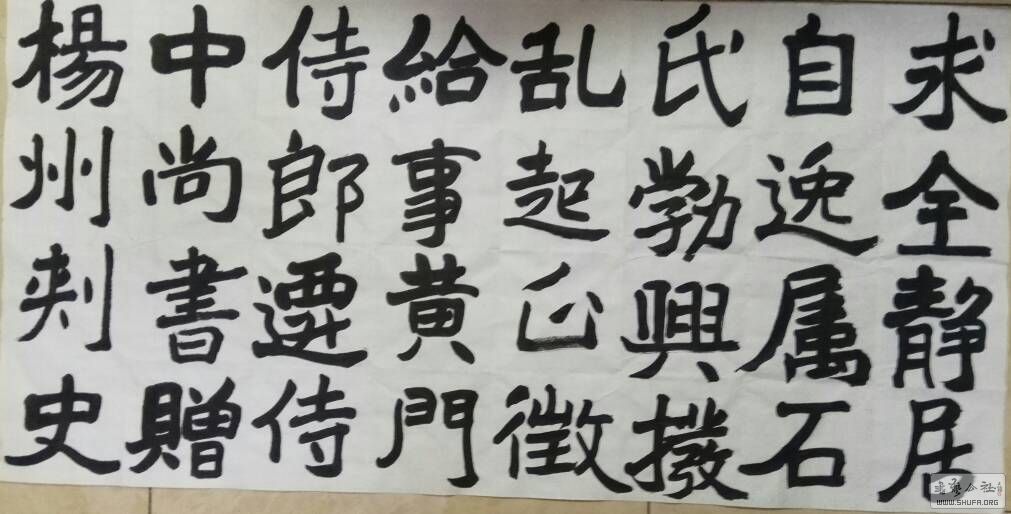 求全静居
自逸属石
氏勃興撥
乱起正徵
給事黄門
侍郎遷侍
中尚書贈
楊州刾史
WWW.SHUFA.ORG